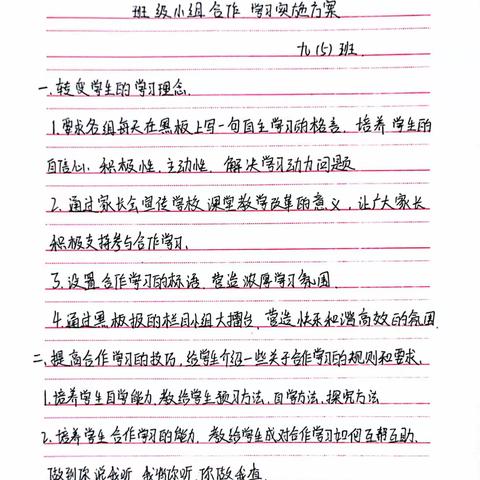 班级小组合作学习实施方案
九(5)班
一、转变学生的学习理念.
1.要求各组每天在黑板上写一句自主学习的格言、培养学生的
自信心、积极性、主动性、解决学习动力问题
2.通过家长会宣传学校课堂教学改革的意义、让广大家长
积极支持参与合作学习、
3、设置合作学习的标语、营造浓厚学习氛围.
4.通过黑板报的栏目小组大擂台、营造快乐和谐高效的氛围.
二、提高合作学习的技巧、给学生介绍一些关于合作学习的规则和要求、
1.培养学生自学能力、教给学生预习方法、自学方法、探究方法
2.培养学生合作学习的能力、教给学生成对合作学习如何互帮互助、
做到你说我听、我讲你听、你做我查